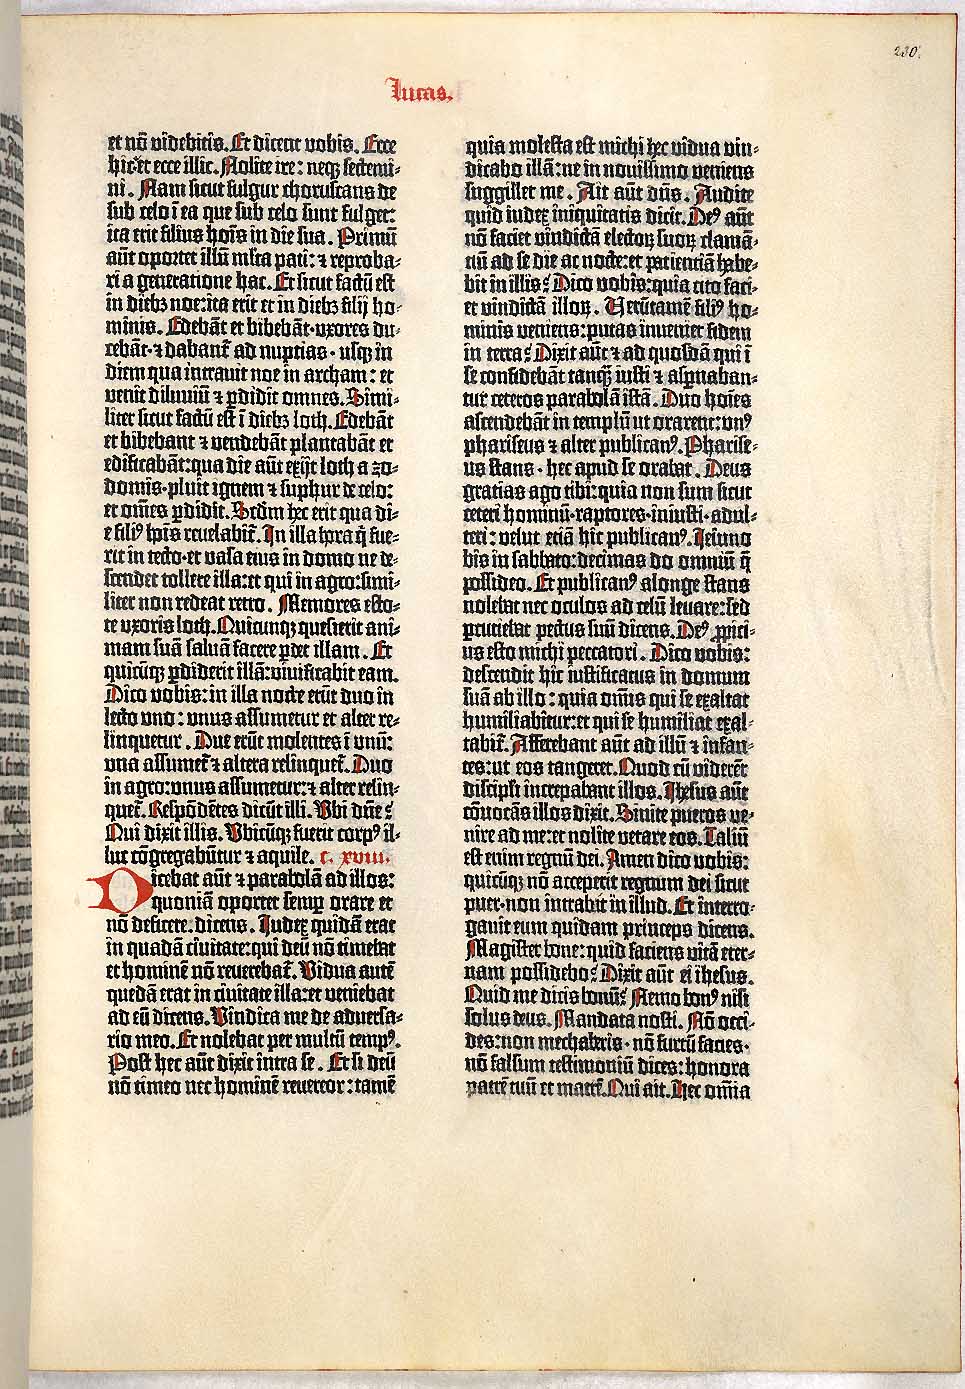 230.
Lucas.
et nō videbitis. Et dicent vobis. Ecce
hic: et ecce illic. Nolite ire: neqꝫ sectemi⸗
ni. Nam sicut fulgur choruscans de
sub celo ī ea que sub celo sunt fulget:
ita erit filius hoīs in die sua. Primū
aūt oportet illū mlta pati: ⁊ reproba⸗
ri a generatione hac. Et sicut factū est
in diebꝫ noe: ita erit et in diebꝫ filij ho⸗
minis. Edebāt et bibebāt· uxores du⸗
cebāt· ⁊ dabant̄ ad nuptias· usqꝫ in
diem qua intrauit noe in archam: et
venit diluuiū ⁊ ꝑdidit omnes. Simi⸗
liter sicut factū est ī diebꝫ loth. Edebāt
et bibebant ⁊ vendebāt plantabāt et
edificabāt: qua die aūt exijt loth a zo⸗
domis· pluit ignem ⁊ sulphur de celo:
et om̄es ꝑdidit. Scdm hec erit qua di⸗
e filiꝰ hoīs reuelabit̄. In illa hora q̄ fue⸗
rit in tecto· et vasa eius in domo ne de⸗
scendet tollere illa: et qui in agro: simi⸗
liter non redeat retro. Memores esto⸗
te uxoris loth. Quicunqꝫ quesierit ani⸗
mam suā saluā facere ꝑdet illam. Et
quicūqꝫ ꝑdiderit illā: viuificabit eam.
Dico vobis: in illa nocte erūt duo in
lecto uno: unus assumetur et alter re⸗
linquetur. Due erūt molentes ī unū:
una assumet̄ ⁊ altera relinquet̄. Duo
in agro: unus assumetur: ⁊ alter relin⸗
quet̄. Respōdētes dicūt illi. Ubi dn̄e?
Qui dixit illis. Ubicūqꝫ fuerit corpꝰ il⸗
luc cōgregabūtur ⁊ aquile. c. xviii.
Dicebat aūt ⁊ parabolā ad illos:
quoniā oportet semꝑ orare et
nō deficere. dicens. Iudex quidā erat
in quadā ciuitate: qui deū nō timebat
et hominē nō reuerebat̄. Vidua autē
quedā erat in ciuitate illa: et veniebat
ad eū dicens. Vindica me de aduersa⸗
rio meo. Et nolebat per multū tempꝰ.
Post hec aūt dixit intra se. Et si deū
nō timeo nec hominē reuereor: tamē
quia molesta est michi hec vidua vin⸗
dicabo illā: ne in nouissimo veniens
suggillet me. Ait aūt dn̄s. Audite
quid iudex iniquitatis dicit. Deꝰ aūt
nō faciet vindictā electoꝝ suoꝝ clamā⸗
tiū ad se die ac nocte: et patientiā habe⸗
bit in illis? Dico vobis: quia cito faci⸗
et vindictā illoꝝ. Uerūtamē filiꝰ ho⸗
minis veniens: putas inueniet fidem
in terra? Dixit aūt ⁊ ad quosdā qui ī
se confidebāt tanqꝫ iusti ⁊ aspnaban⸗
tur ceteros parabolā istā. Duo hoīes
ascendebāt in templū ut orarent: unꝰ
phariseus ⁊ alter publicanꝰ. Pharise⸗
us stans· hec apud se orabat. Deus
gratias ago tibi: quia non sum sicut
ceteri hominū· raptores· iniusti· adul⸗
teri: velut etiā hic publicanꝰ. Ieiuno
bis in sabbato: decimas do omniū q̄
possideo. Et publicanꝰ alonge stans
nolebat nec oculos ad celū leuare: sed
ꝑcutiebat pectus suū dicens. Deꝰ ꝓpici⸗
us esto michi peccatori. Dico vobis:
descendit hic iustificatus in domum
suā ab illo: quia om̄is qui se exaltat
humiliabitur: et qui se humiliat exal⸗
tabit̄. Afferebant aūt ad illū ⁊ infan⸗
tes: ut eos tangeret. Quod cū viderēt
discipli increpabant illos. Ihesus aūt
cōuocās illos dixit. Sinite pueros ve⸗
nire ad me: et nolite vetare eos. Taliū
est enim regnū dei. Amen dico vobis:
quicūqꝫ nō acceperit regnum dei sicut
puer· non intrabit in illud. Et interro⸗
gauit eum quidam princeps dicens.
Magister bone: quid faciens vitā eter⸗
nam possidebo? Dixit aūt ei ihesus.
Quid me dicis bonū? Nemo bonꝰ nisi
solus deus. Mandata nosti. Nō occi⸗
des: non mechaberis· nō furtū facies·
nō falsum testimoniū dices: honora
patrē tuū et matrē. Qui ait. Hec om̄ia